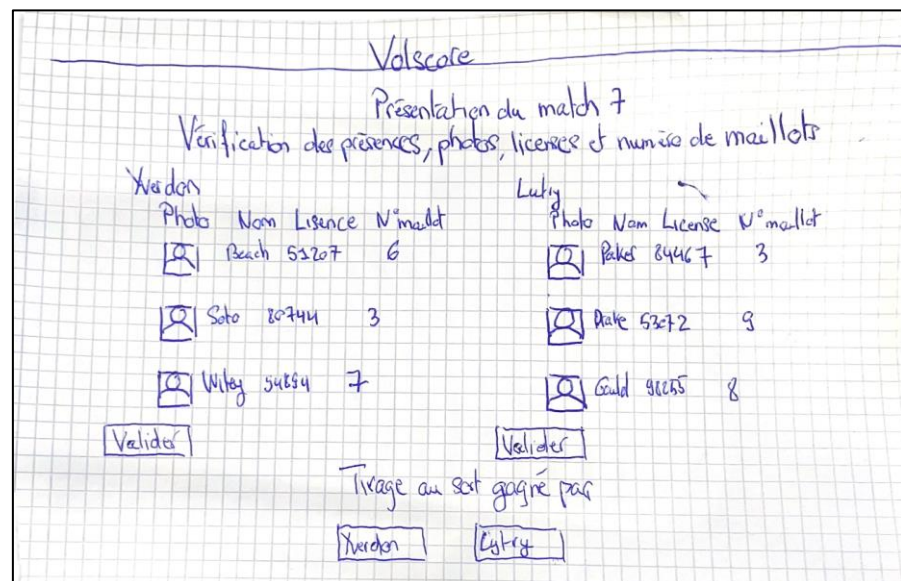 Volscore
Présentation du match 7
Vérification des présences, photos, licenses et numéro de maillots
Yverdon
Photo Nom Lisence N°maillot
Beach 51207 6
Soto 80744 3
Wiley 54894 7
Valider
Lutry
Photo Nom License N°maillot
84467 3
Drake 53072 9
Gould 98255 8
Valider
Tirage au sort gagné par
Yverdon
Lytry